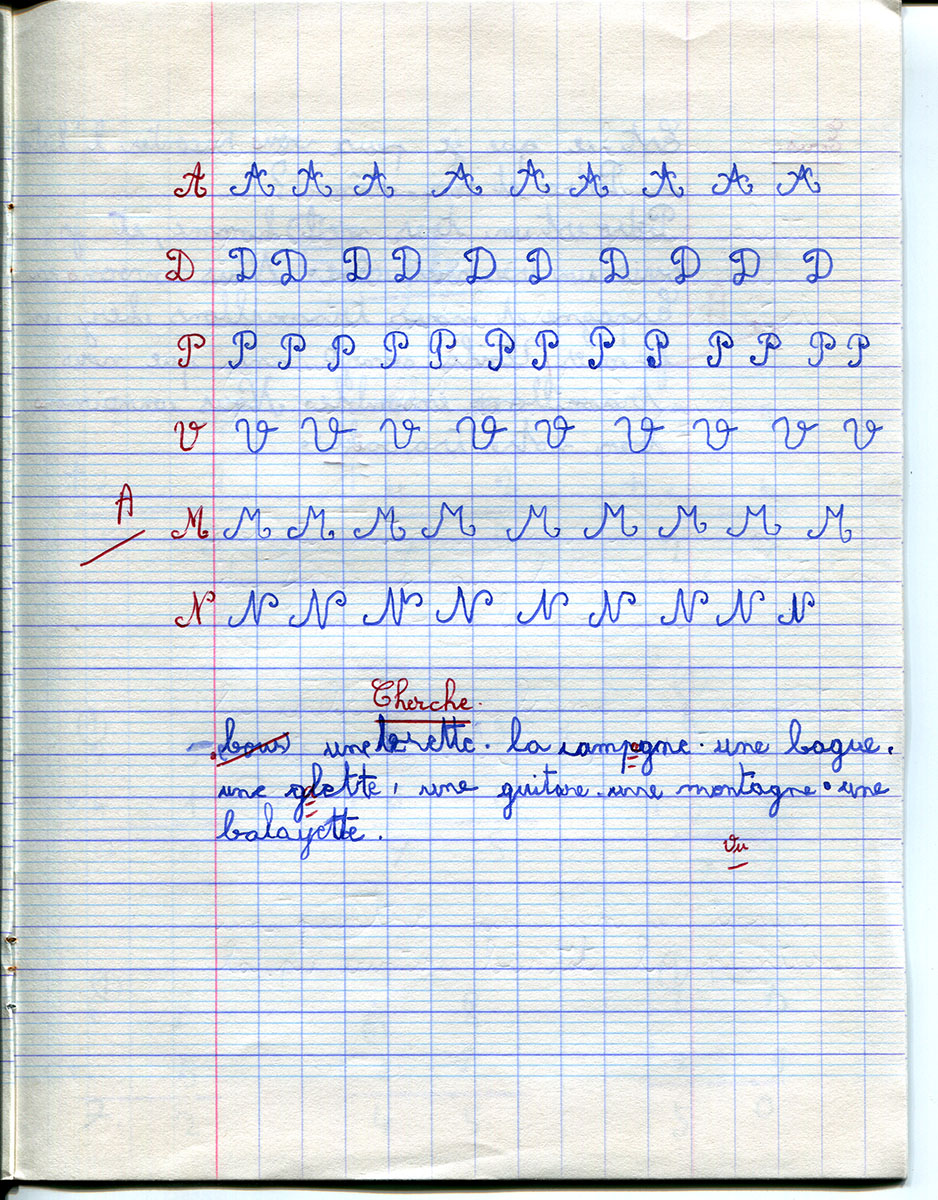 A A A A A A A A A A
D D D D D D D D D D D
P P P P P P P P P P P P P P
V V V V V V V V V V
A
M M M M M M M M M M
N N N N N N N N N N
Cherche.
bous une brette. la campagne. une bague.
une glette, une guitare. une montagne. une
balayette.
Vu